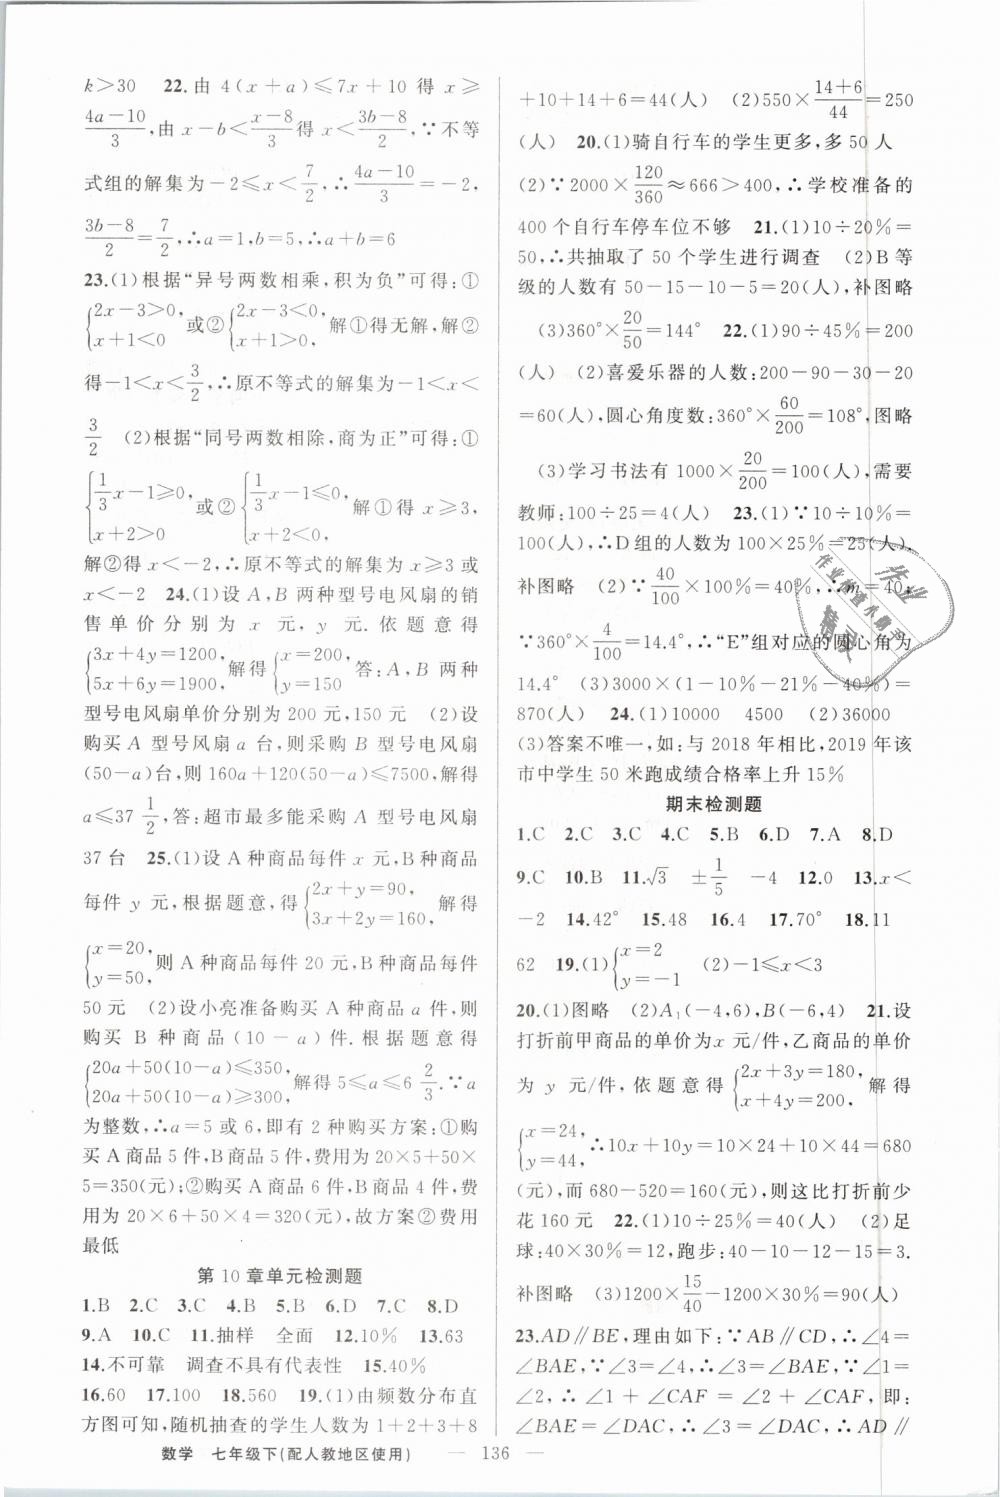 k>30　22.由 4(x+a)≤7x+10 得 x≥
(4a-10)/3,由 x-b<(x-8)/3 得 x<(3b-8)/2,∵不等
式组的解集为-2≤x<7/2,∴(4a-10)/3=-2,
(3b-8)/2=7/2,∴a=1,b=5,∴a+b=6
23.(1)根据“异号两数相乘,积为负”可得:①
{2x-3>0, x+1<0 或②{2x-3<0, x+1>0, 解①得无解,解②
得-1<x<3/2,∴原不等式的解集为-1<x<
3/2　(2)根据“同号两数相除,商为正”可得:①
{1/3x-1≥0, x+2>0 或②{1/3x-1≤0, x+2<0, 解①得 x≥3,
解②得 x<-2,∴原不等式的解集为 x≥3 或
x<-2　24.(1)设 A,B 两种型号电风扇的销
售单价分别为 x 元,y 元.依题意得
{3x+4y=1200, 5x+6y=1900, 解得{x=200, y=150 答:A,B 两种
型号电风扇单价分别为 200 元,150 元　(2)设
购买 A 型号风扇 a 台,则采购 B 型号电风扇
(50-a)台,则 160a+120(50-a)≤7500,解得
a≤37 1/2,答:超市最多能采购 A 型号电风扇
37 台　25.(1)设 A 种商品每件 x 元,B种商品
每件 y 元,根据题意,得{2x+y=90, 3x+2y=160, 解得
{x=20, y=50, 则 A 种商品每件 20 元,B 种商品每件
50 元　(2)设小亮准备购买 A 种商品 a 件,则
购买 B 种商品(10-a)件.根据题意得
{20a+50(10-a)≤350, 20a+50(10-a)≥300, 解得 5≤a≤6 2/3.∵a
为整数,∴a=5 或 6,即有 2 种购买方案:①购
买 A 商品 5 件,B商品 5 件,费用为 20×5+50×
5=350(元);②购买 A 商品 6 件,B商品 4 件,费
用为 20×6+50×4=320(元),故方案②费用
最低
第 10 章单元检测题
1.B　2.C　3.C　4.B　5.B　6.D　7.C　8.D
9.A　10.C　11.抽样　全面　12.10%　13.63
14.不可靠　调查不具有代表性　15.40%
16.60　17.100　18.560　19.(1)由频数分布直
方图可知,随机抽查的学生人数为 1+2+3+8
+10+14+6=44(人)　(2)550×(14+6)/44=250
(人)　20.(1)骑自行车的学生更多,多 50 人
(2)∵2000×120/360≈666>400,∴学校准备的
400 个自行车停车位不够　21.(1)10÷20%=
50,∴共抽取了 50 个学生进行调查　(2)B 等
级的人数有 50-15-10-5=20(人),补图略
(3)360°×20/50=144°　22.(1)90÷45%=200
(人)　(2)喜爱乐器的人数:200-90-30-20
=60(人),圆心角度数:360°×60/200=108°,图略
(3)学习书法有 1000×20/200=100(人),需要
教师:100÷25=4(人)　23.(1)∵10÷10%=
100(人),∴D组的人数为 100×25%=25(人),
补图略　(2)∵40/100×100%=40%,∴m=40,
∵360°×4/100=14.4°,∴“E”组对应的圆心角为
14.4°　(3)3000×(1-10%-21%-40%)=
870(人)　24.(1)10000　4500　(2)36000
(3)答案不唯一,如:与 2018 年相比,2019 年该
市中学生 50 米跑成绩合格率上升 15%
期末检测题
1.C　2.C　3.C　4.C　5.B　6.D　7.A　8.D
9.C　10.B　11.√3　±1/5　-4　12.0　13.x<
-2　14.42°　15.48　16.4　17.70°　18.11
62　19.(1){x=2 y=-1　(2)-1≤x<3
20.(1)图略　(2)A₁(-4,6),B(-6,4)　21.设
打折前甲商品的单价为 x 元/件,乙商品的单价
为 y 元/件,依题意得{2x+3y=180, x+4y=200, 解得
{x=24, y=44, ∴10x+10y=10×24+10×44=680
(元),而 680-520=160(元),则这比打折前少
花 160 元　22.(1)10÷25%=40(人)　(2)足
球:40×30%=12,跑步:40-10-12-15=3.
补图略　(3)1200×15/40-1200×30%=90(人)
23.AD∥BE,理由如下:∵AB∥CD,∴∠4=
∠BAE,∵∠3=∠4,∴∠3=∠BAE,∵∠1=
∠2,∴∠1+∠CAF=∠2+∠CAF,即:
∠BAE=∠DAC,∴∠3=∠DAC,∴AD∥
数学　七年级下(配人教地区使用)　— 136 —
作业
作业检查小助手
精灵